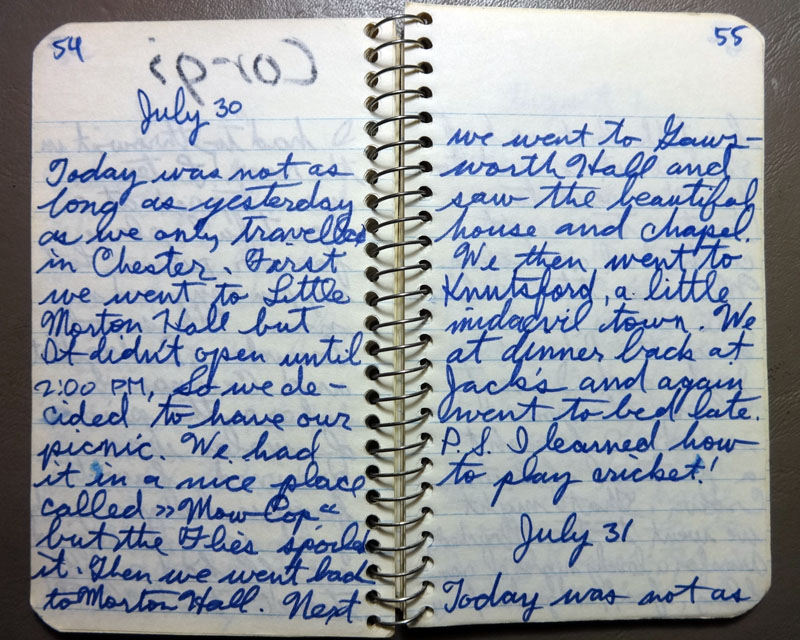 54
Cor-gi
July 30
Today was not as
long as yesterday
as we only travelled
in Chester. First
we went to Little
Morton Hall but
It didn't open until
2:00 PM, so we de-
cided to have our
picnic. We had
it in a nice place
called »Mow Cop«
but the flies spoild
it. Then we went back
to Morton Hall. Next
55
we went to Gaws-
worth Hall and
saw the beautiful
house and chapel.
We then went to
Knutsford, a little
midaevil town. We
at dinner back at
Jack's and again
went to bed late.
P.S. I learned how
to play cricket!
July 31
Today was not as